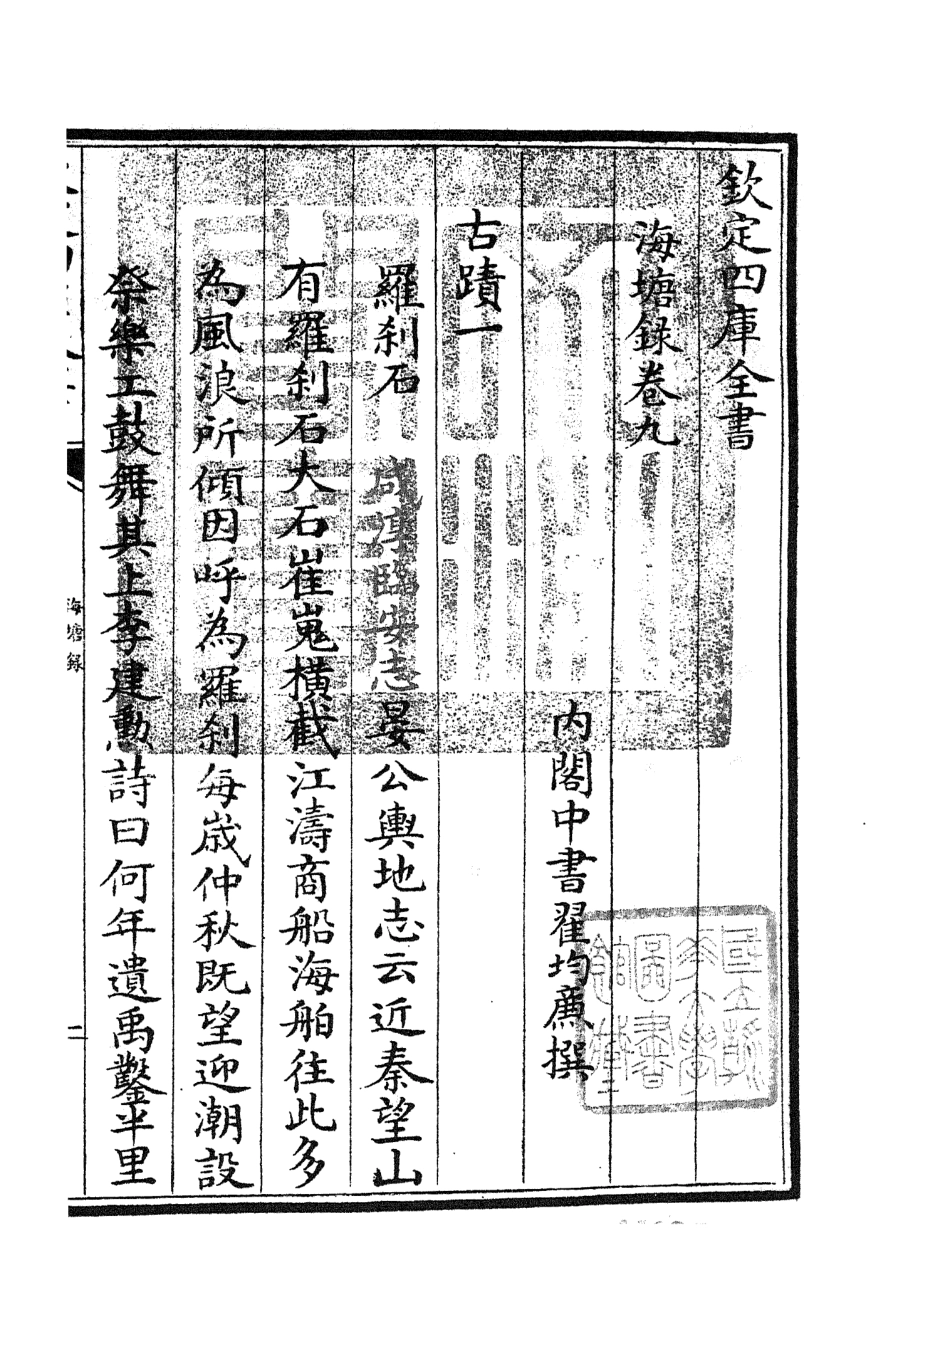 欽定四庫全書
海塘錄卷九
內閣中書翟均廉撰
古蹟一
羅刹石咸淳臨安志晏公輿地志云近秦望山
有羅刹石大石崔嵬橫截江濤商船海舶往此多
為風浪所傾因呼為羅刹每歲仲秋既望迎潮設
祭樂工鼓舞其上李建勳詩曰何年遺禹鑿半里
海塘錄
二